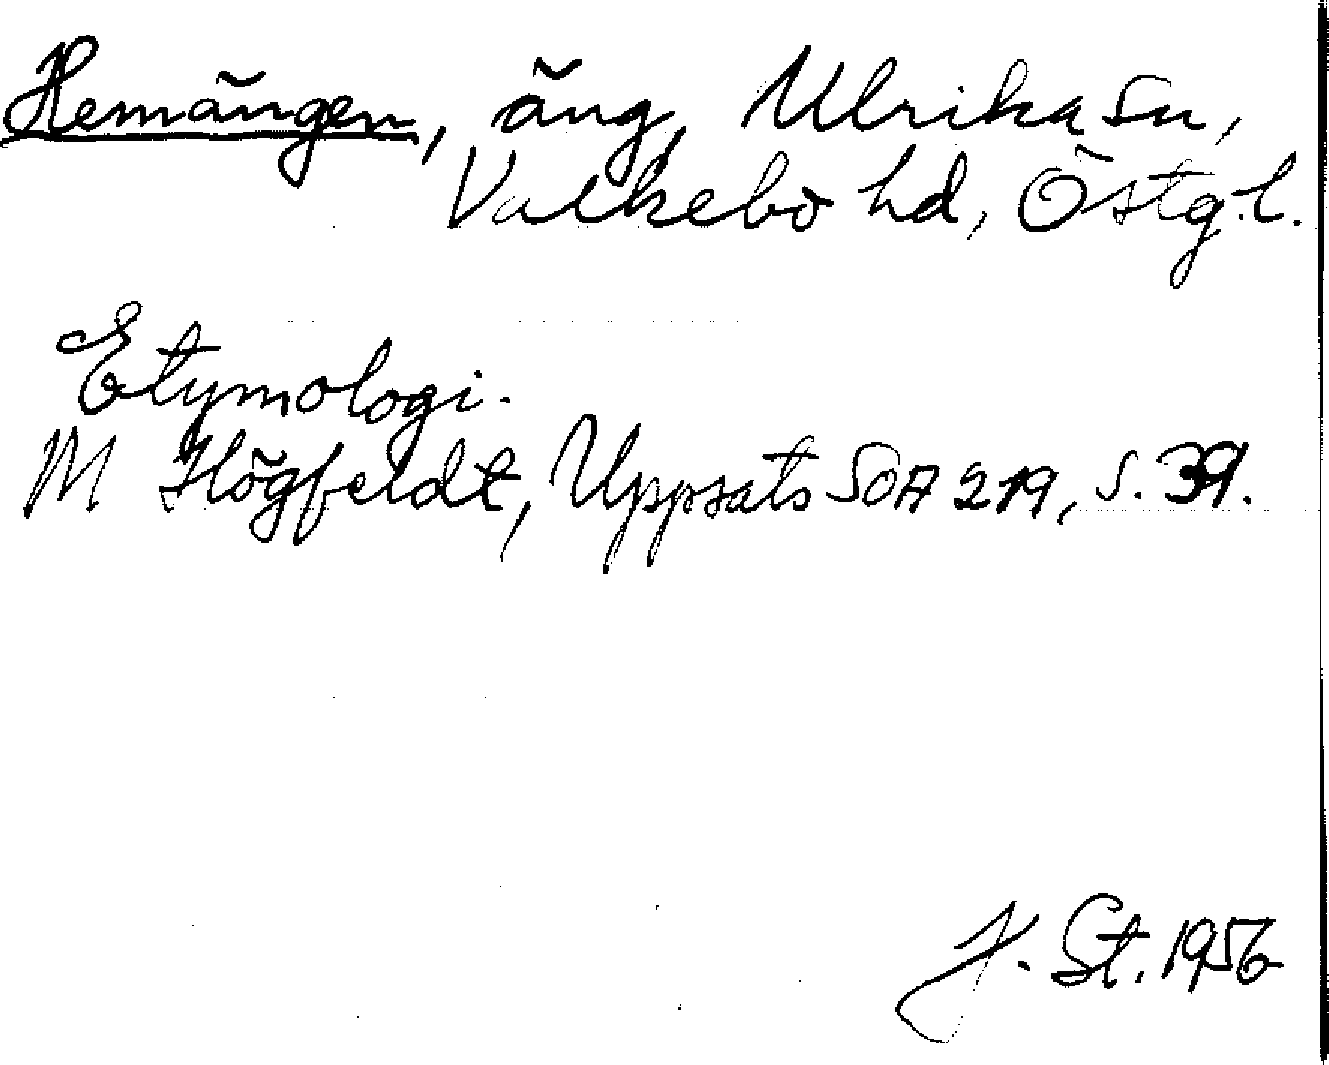 Hemängen, äng, Ulrika sn,
Valkebo hd, Östg.l.
Etymologi.
M Högfeldt, Uppsats SOA 219, s. 39.
J. St. 1956